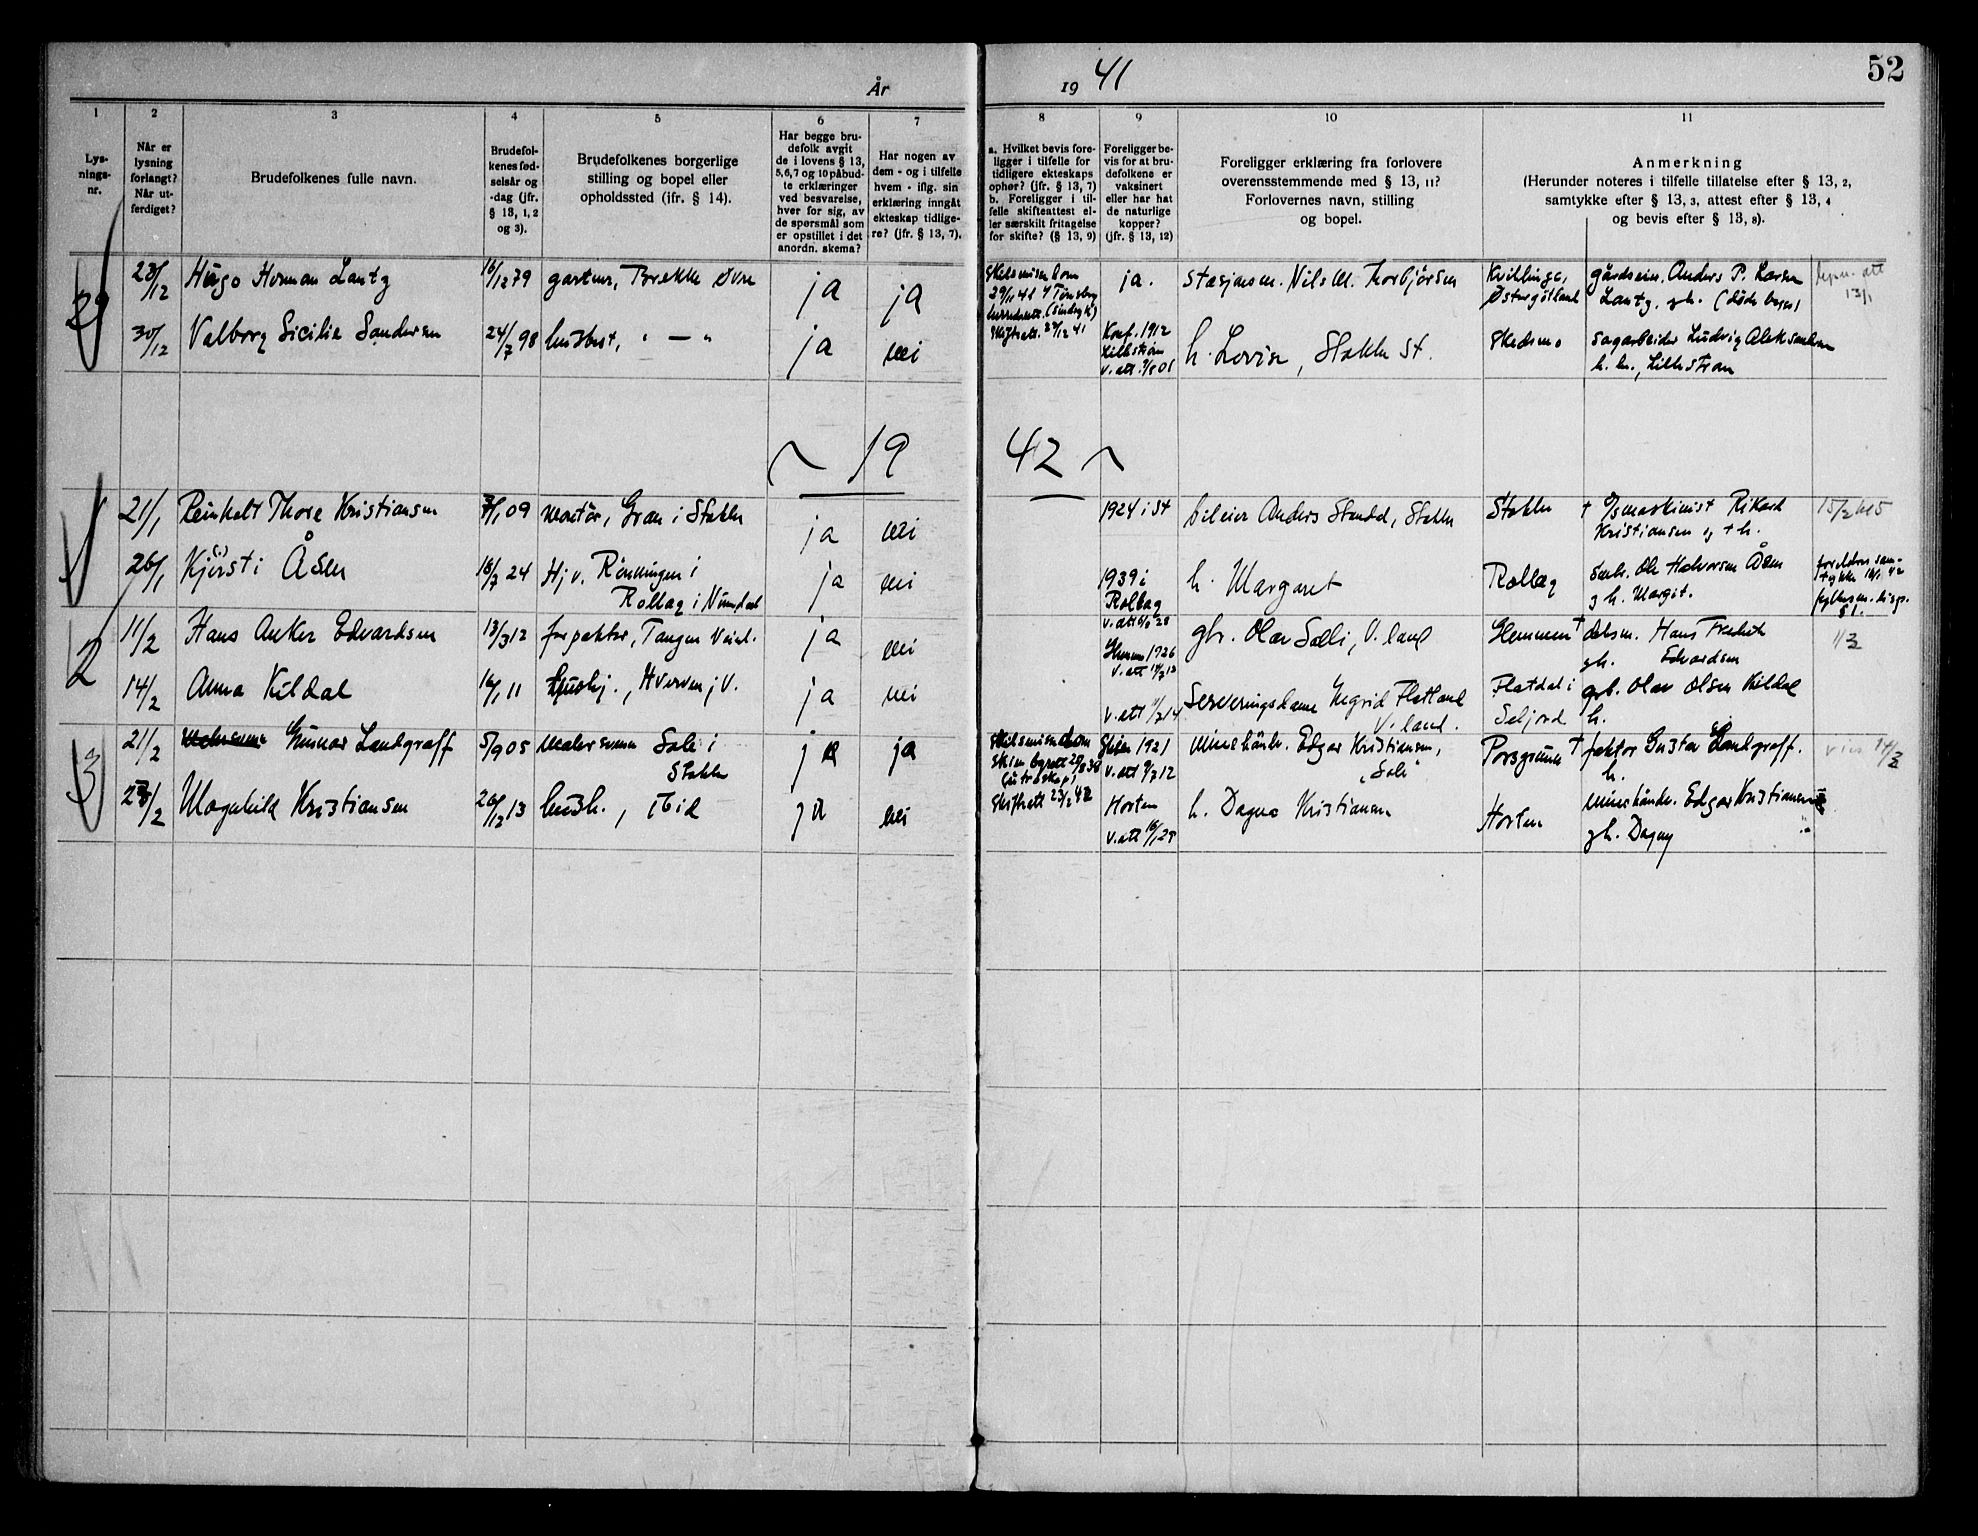 År
19 41
52
1
2
3
4
5
6
7
8
9
10
11
Lys-
nings-
nr.
Når er
lysning
forlangt?
Når ut-
ferdiget?
Brudefolkenes fulle navn.
Brudefol-
kenes fød-
selsår og
-dag (jfr.
§ 13, 1, 2
og 3).
Brudefolkenes borgerlige
stilling og bopel eller
opholdssted (jfr. § 14).
Har begge bru-
defolk avgit
de i lovens § 13,
5, 6, 7 og 10 påbud-
te erklæringer
ved besvarelse,
hver for sig, av
de spørsmål som
er opstillet i det
anordn. skema?
Har nogen av
dem - og i tilfelle
hvem - iflg. sin
erklæring inngått
ekteskap tidlige-
re? (jfr. § 13, 7).
a. Hvilket bevis fore-
ligger i tilfelle for
tidligere ekteskaps
ophør? (jfr. § 13, 7)
b. Foreligger i til-
felle skifteattest el-
ler særskilt fritagelse
for skifte? (§ 13, 9)
Foreligger be-
vis for at bru-
defolkene er
vaksinert
eller har hat
de naturlige
kopper?
(jfr. § 13, 12)
Foreligger erklæring fra forlovere
overensstemmende med § 13, 11?
Forlovernes navn, stilling
og bopel.
Anmerkning
(Herunder noteres i tilfelle tillatelse efter § 13, 2,
samtykke efter § 13, 3, attest efter § 13, 4
og bevis efter § 13, 8).
29
23/12 Hugo Herman Lantz 16/12 79 gartner, Brekke Øvre ja ja
ja. Stasjonsm. Nils M. Thorbjørsen Kvillinge, Østergötland gårdseier Anders P. Larsen
Lantz, gh. (døde begge)
13/1
30/12 Valborg Sicilie Sandersen 24/7 98 husbest, " — " ja nei
Skifteatt. 29/12 41 Konf. 1912 Lillestrøm h. Lovise, Stokke St. Skedsmo sagarbeider Ludvig Aleksandersen
h. h., Lillestrøm
19 42
1
21/1 Reinholt Thore Kristiansen 7/1 09 montør, Gran i Stokke ja nei
1924 i St. bileier Anders Stendal, Stokke Stokke + maskinist Rikard
Kristiansen og + h.
15/2
26/1 Kjersti Åsen 16/7 24 Hj. v. Rønningen i
Rollag i Numedal ja nei
1939 i
Rollag h. Margaret Rollag Ole Halvorsen Åsen
g h. Margit.
foreldres sam-
tykke 16/1 42
2
11/2 Hans Anker Edvardsen 13/3 12 Tangen ja nei
1926 gbr. Olav Sælli, V. land Glemmen + Hans Fredrik
gh. Edvardsen
1/3
14/2 Anna Kildal 16/1 11 Hushj., ja nei
v. att 11/2 14 Serveringsdame Ingrid Flatland
V. land. Flatdal i
Seljord grb. Olav Olsen Kildal
h.
3
21/2 Gunnar Landgraff 5/9 05 malersvenn Sole i
Stokke ja ja
Skien byrett Skien 1921
v. att 9/7 12 Edgar Kristiansen,
"Sole" Porsgrunn + faktor Gustav Landgraff.
h.
14/3
23/2 Magnhild Kristiansen 26/12 13 hush., ibid ja nei
Skifteatt 23/2 42 Horten
v. att 16/1 25 h. Dagny Kristiansen Horten Edgar Kristiansen
gh. Dagny